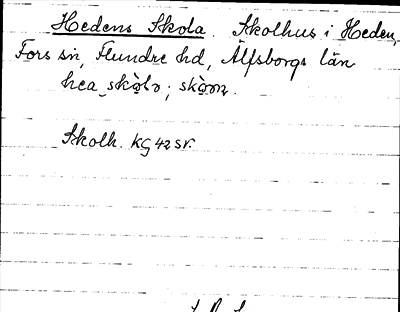 Hedens Skola. Skolhus i Heden,
Fors sn, Flundre hd, Älfsborgs län
hea skò̤lɒ; skò̤ɷn.
Skolh. KG 42 sv.